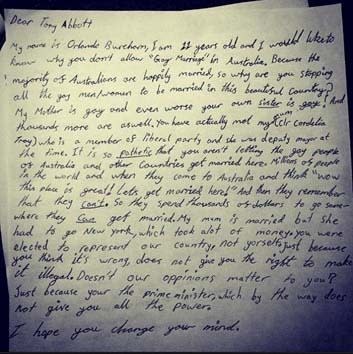 Dear Tony Abbott
My name is Orlando Burcham, I am 11 years old and I would like to
know why you don't allow "Gay Marriage" in Australia. Because the
majority of Australians are happily married, so why are you stopping
all the gay men/women to be married in this beautiful country?
My Mother is gay and even worse your own sister is gay! And
thousands more are aswell. You have actually met my mum (Clr Cordelia
Troy) who is a member of liberal party and she was deputy mayor at
the time. It is so pathetic that you aren't letting the gay people
of Australia and other Countries get married here. Millions of people
in the world and when they come to Australia and think "wow
this place is great! Lets get married here!" And then they remember
that they can't. So they spend thousands of dollars to go some-
where they can get married. My mum is married but she
had to go New york, which took alot of money. you were
elected to represent our country, not yorself, just because
you think it's wrong, does not give you the right to make
it illegal. Doesn't our oppinions matter to you?
Just because your the prime minister, which by the way does
not give you all the power.
I hope you change your mind.